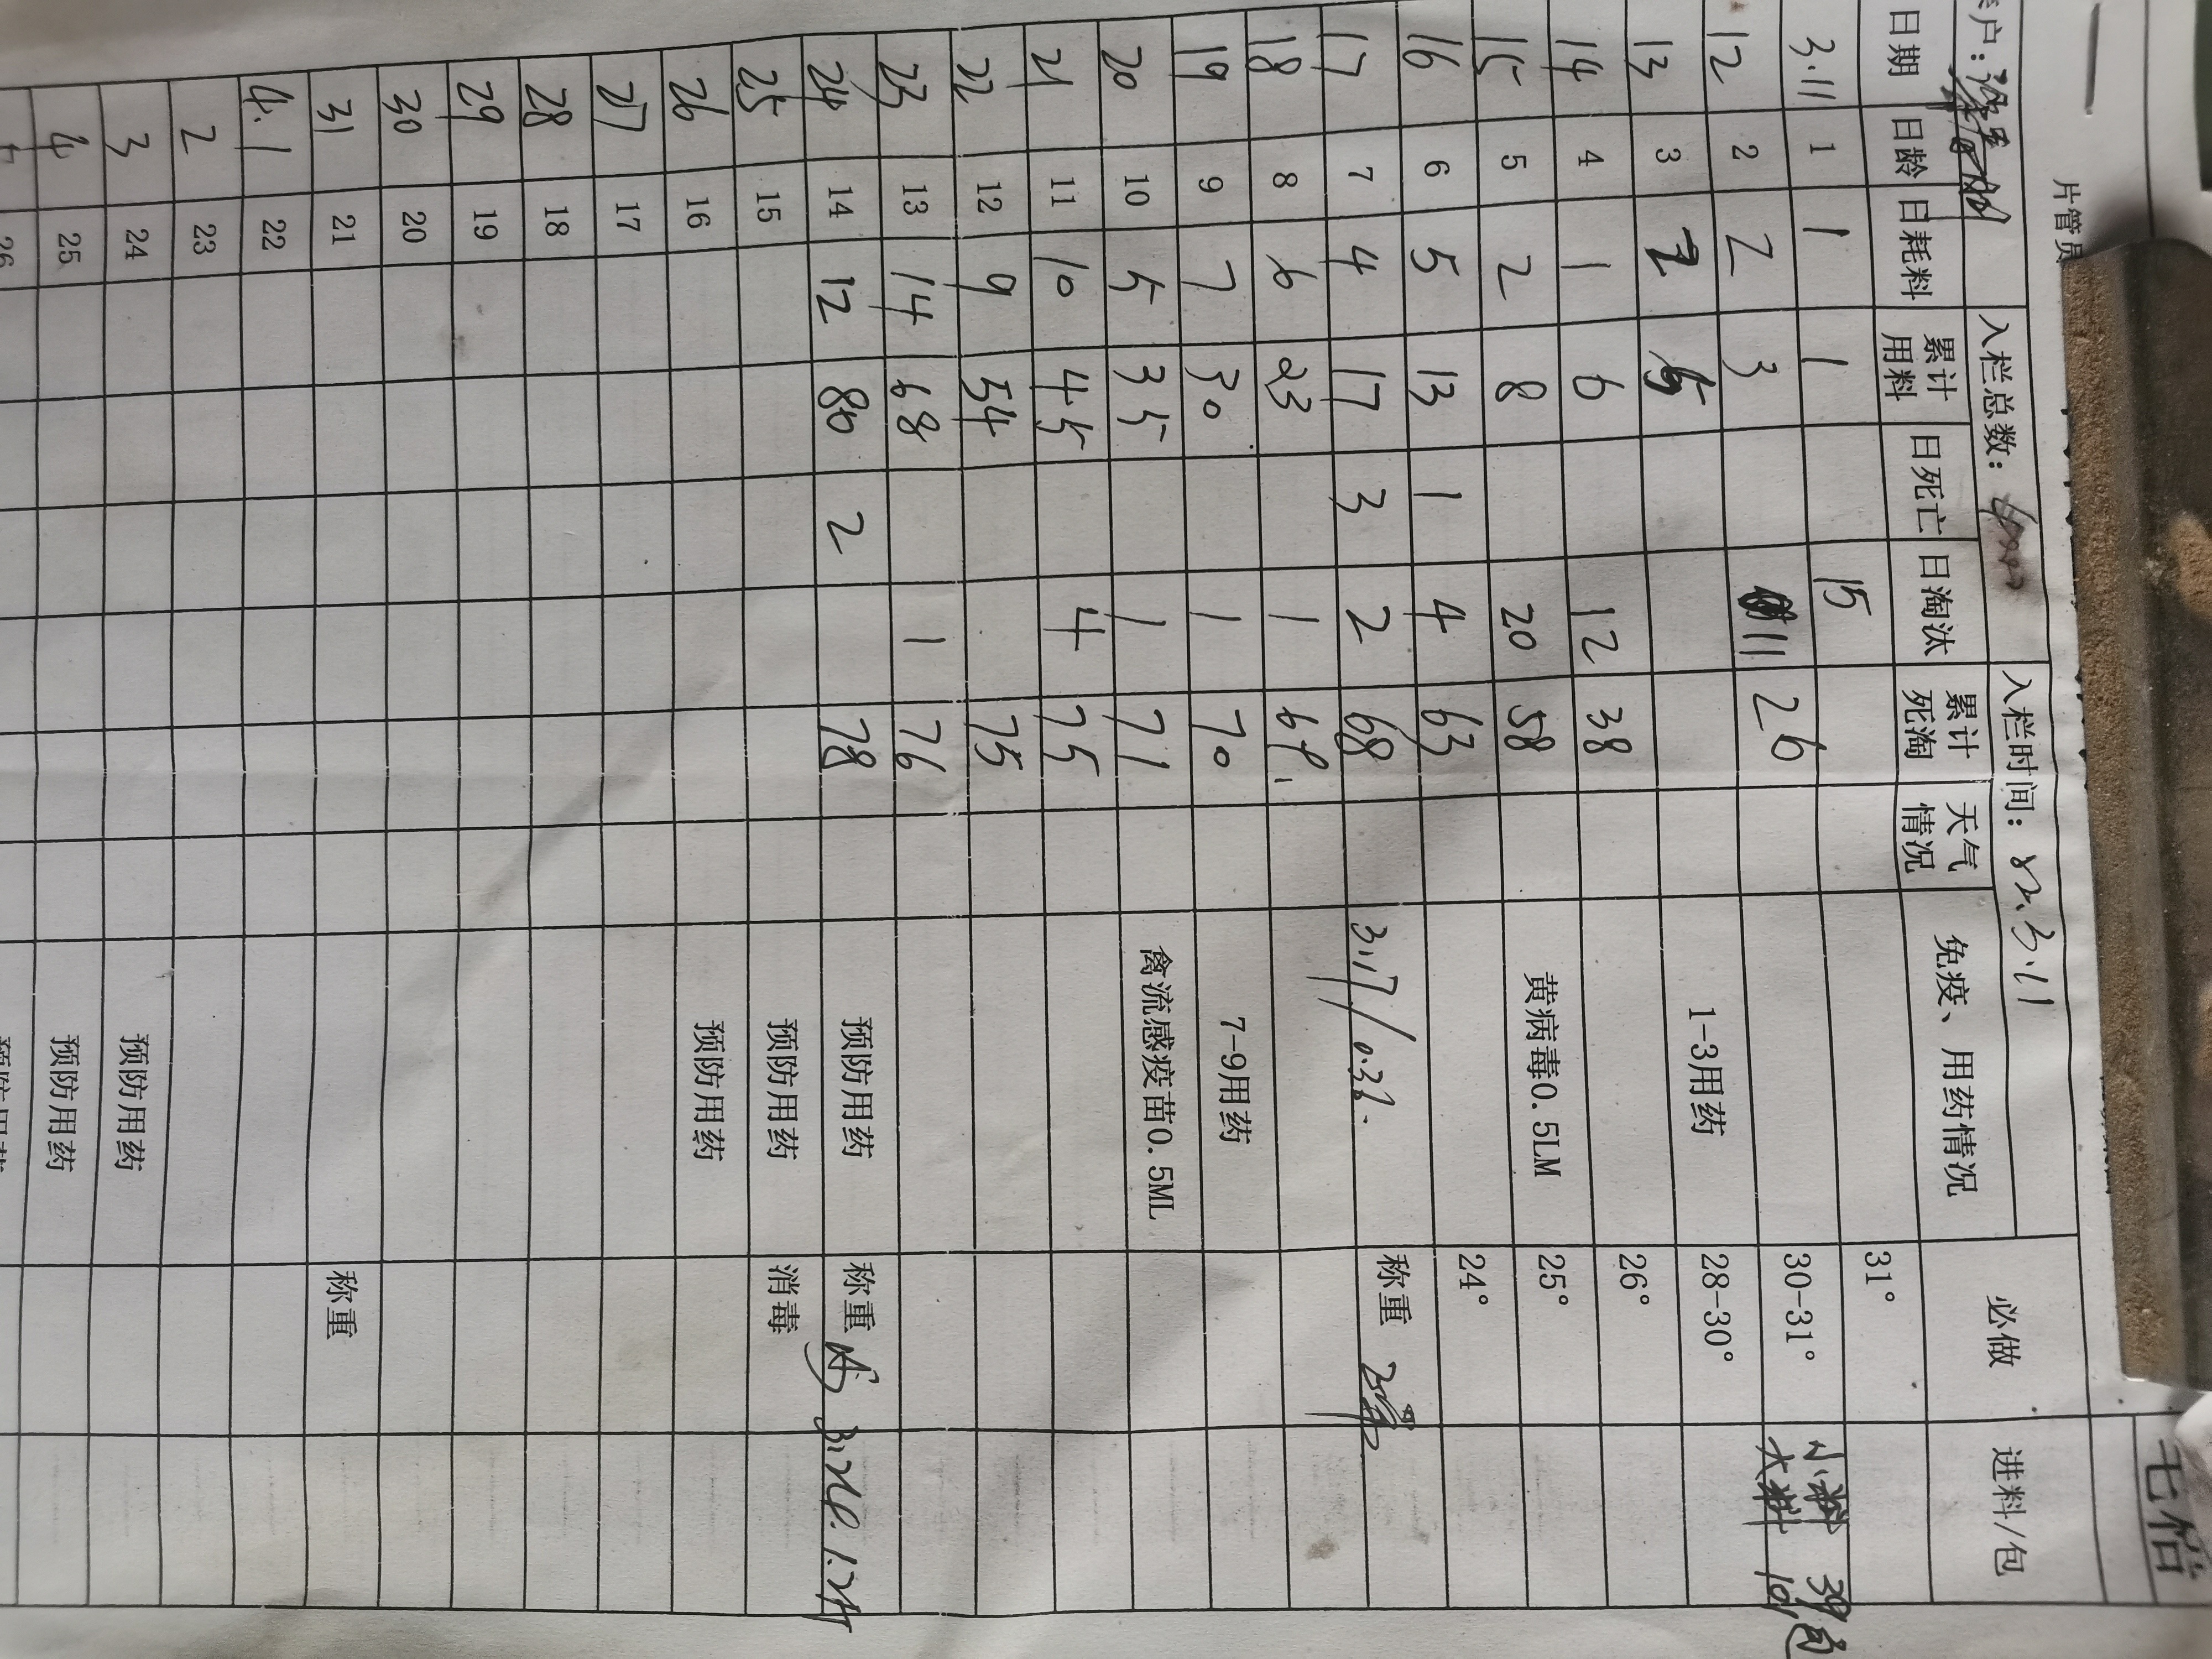 片管员
户: 入栏总数: 入栏时间: 22.3.11
日期 日龄 日耗料 累计用料 日死亡 日淘汰 累计死淘 天气情况 免疫、用药情况 必做 进料/包
3.11 1 1 1 15 31° 小料 39包
12 2 2 3 11 26 30-31° 大料 10包
13 3 2 5 1-3用药 28-30°
14 4 1 6 12 38 26°
15 5 2 8 20 58 黄病毒0.5LM 25°
16 6 5 13 1 4 63 24°
17 7 4 17 3 2 68 3.17/0.38. 称重
18 8 6 23 1 69.
19 9 7 30 1 70 7-9用药
20 10 5 35 1 71 禽流感疫苗0.5ML
21 11 10 45 4 75
22 12 9 54 75
23 13 14 68 1 76
24 14 12 80 2 78 预防用药 称重 3.24. 1.2斤
25 15 预防用药 消毒
26 16 预防用药
27 17
28 18
29 19
30 20
31 21 称重
4.1 22
2 23
3 24 预防用药
4 25 预防用药
26 预防用药